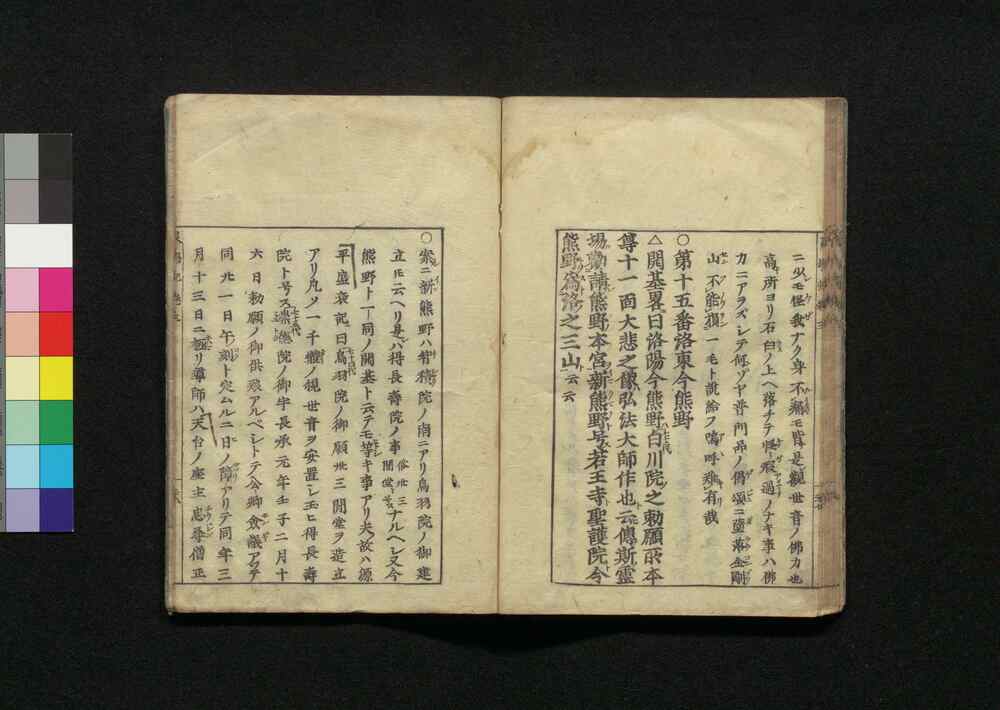 ニ少モ怪我ナク身不痛モ皆是觀世音ノ佛力也
高所ヨリ石臼ノ上ヘ落チテ怪我過ノナキ事ハ佛
カニアラズシテ何ゾヤ普門品ノ偈頌ニ墮落金剛
山不能損一毛ト説給フ嗚呼難有哉
○第十五番洛東今熊野
△開基畧曰洛陽今熊野白川院之勅願所本
尊十一面大悲之像弘法大師作也云傳斯靈
場勸請熊野本宮新熊野号若王寺聖護院今
熊野爲洛之三山ト云云
○案ニ新熊野ハ若 院ノ南ニアリ鳥羽院ノ御建
立ト云ヘリ是ハ得長壽院ノ事俗卅三間堂ト号スナルヘレ又今
熊野ト一同ノ開基ト云テモ等キ事アリ夫故ハ源
平盛衰記曰鳥羽院ノ御願卅三間堂ヲ造立
アリ凡ソ一千 ノ觀世音ヲ安置シ玉ヒ得長壽
院ト号ス崇德院ノ御宇長承元年壬子二月十
六日勅願ノ御供養アルベシトテ公卿僉議アツテ
同廿一日午ノ刻ト定ムルニ日ノ障アリテ同年三
月十三日ニ極リ導師ハ天台ノ座主忠尋僧正